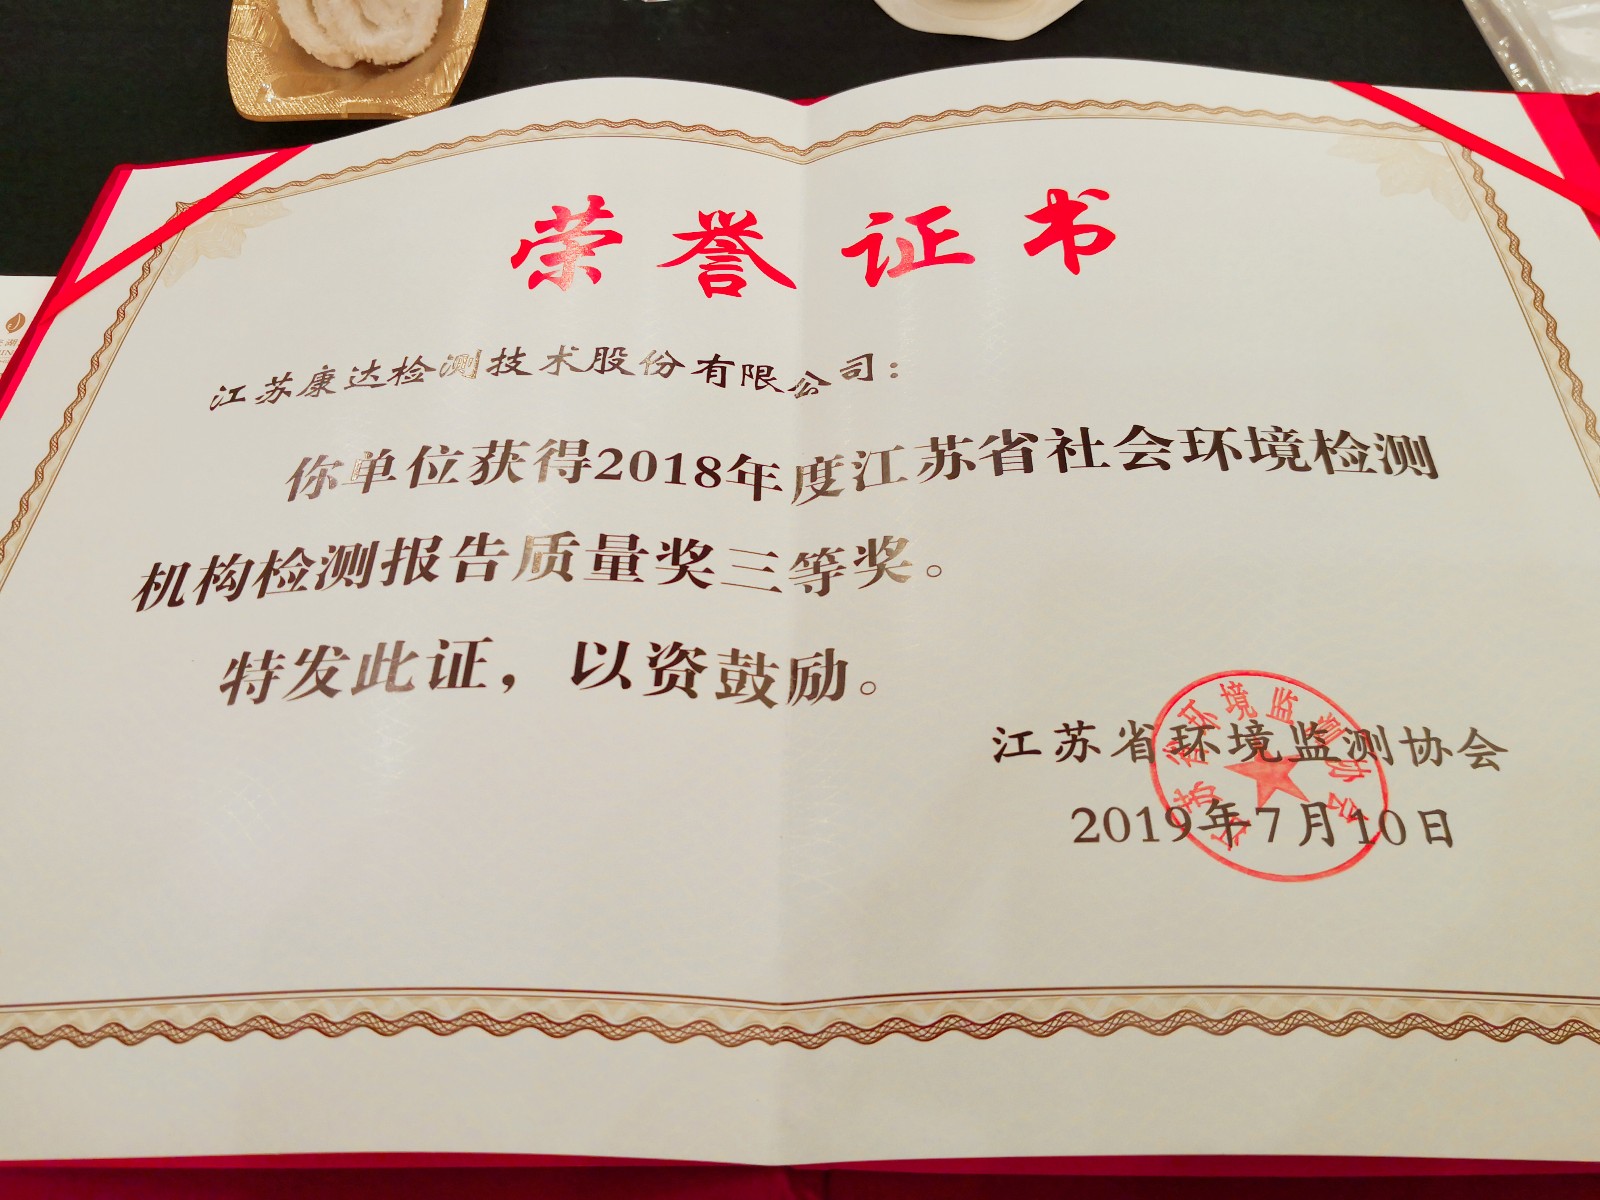 荣誉证书
江苏康达检测技术股份有限公司：
你单位获得2018年度江苏省社会环境检测
机构检测报告质量奖三等奖。
特发此证，以资鼓励。
江苏省环境监测协会
2019年7月10日
江苏省环境监测协会